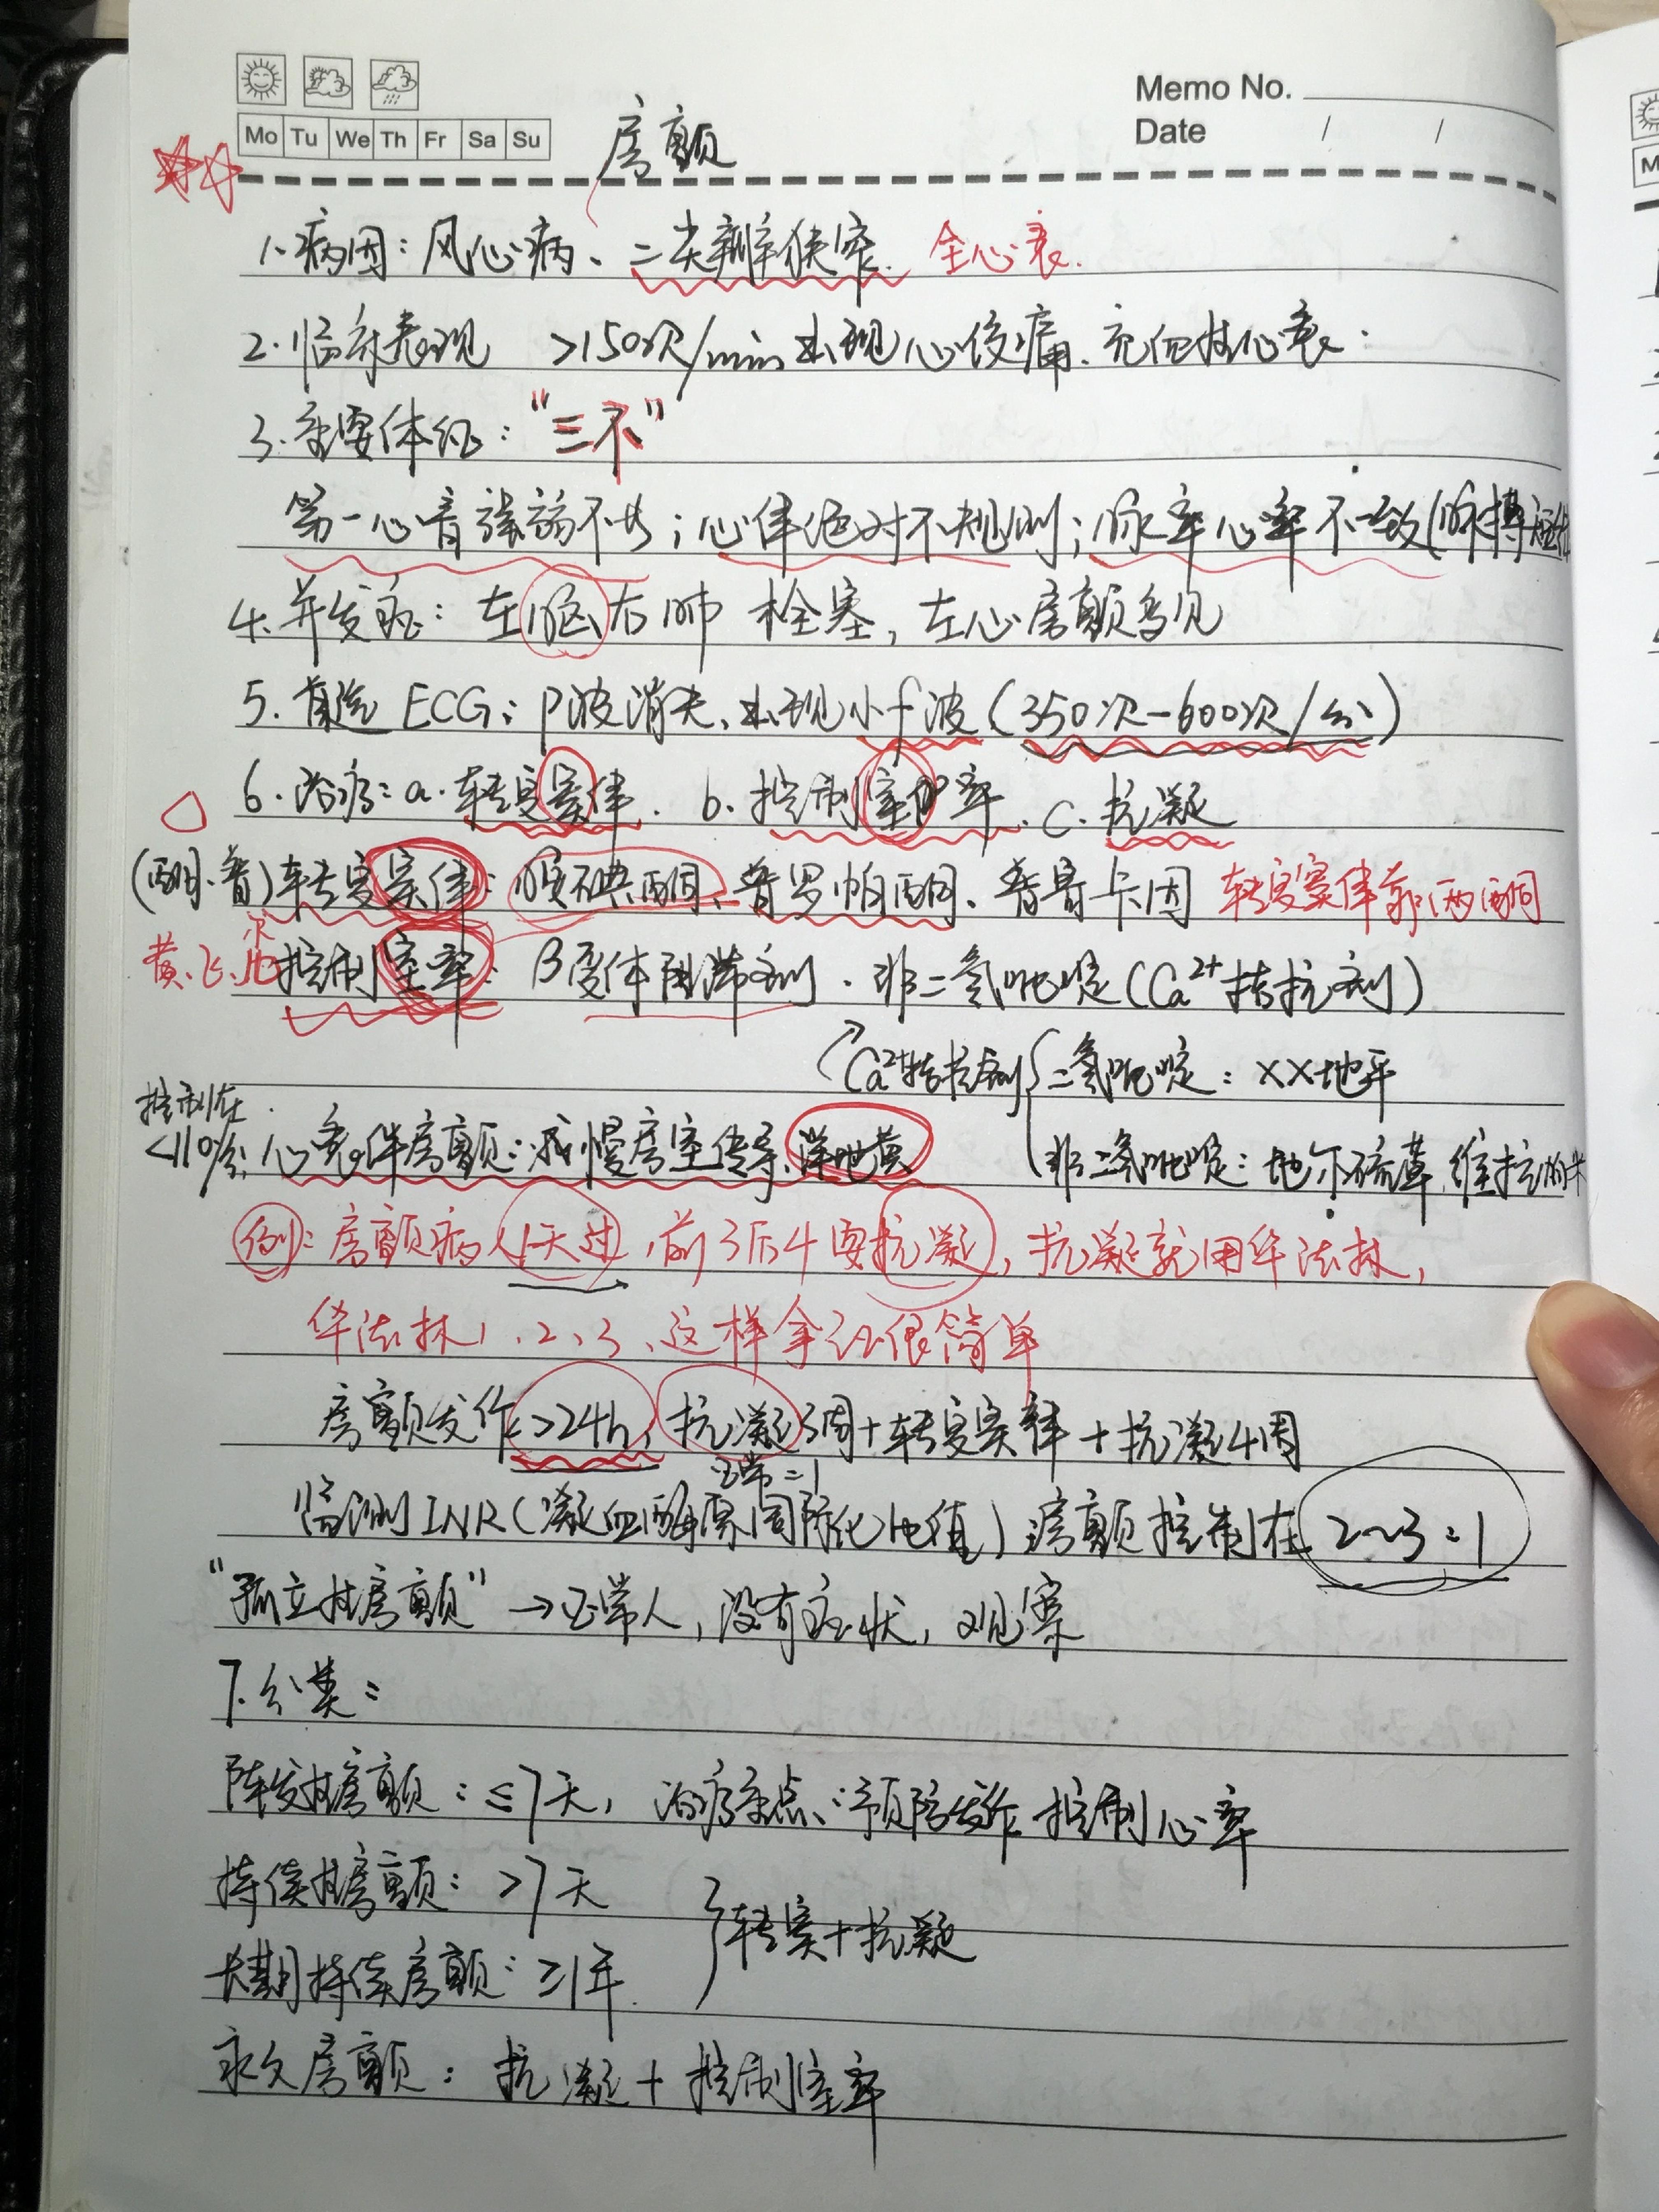 Memo No.
Date / /
Mo Tu We Th Fr Sa Su
房颤
1.病因:风心病、二尖瓣狭窄. 全心衰.
2.临床表现 >150次/min出现心绞痛、充血性心衰.
3.主要体征:"三不"
第一心音强弱不等;心律绝对不规则;脉率心率不一致(脉搏短绌
4.并发症:左脑右肺 栓塞,左心房颤多见
5.首选ECG:P波消失、出现小f波(350次-600次/分)
6.治疗:a.转复窦律. b.控制室率. c.抗凝
(酮、普)转复窦律:胺碘酮、普罗帕酮、普鲁卡因 转复窦律靠两酮
黄、飞、 控制室率:β受体阻滞剂.非二氢吡啶(Ca²⁺拮抗剂)
Ca²⁺拮抗剂 二氢吡啶:××地平
控制在
<110/分 心衰伴房颤:减慢房室传导、洋地黄 非二氢吡啶:地尔硫䓬、维拉帕米
例:房颤病人1天过,前3后4要抗凝,抗凝就用华法林,
华法林1、2、3、这样拿证很简单
房颤发作>24h,抗凝3周+转复窦律+抗凝4周
正常=1
监测INR(凝血酶原国际化比值)房颤控制在2~3:1
"孤立性房颤"→正常人,没有症状,观察
7.分类:
阵发性房颤:≤7天,治疗重点:预防发作 控制心率
持续性房颤:>7天
转窦+抗凝
长期持续房颤:≥1年.
永久房颤:抗凝+控制室率